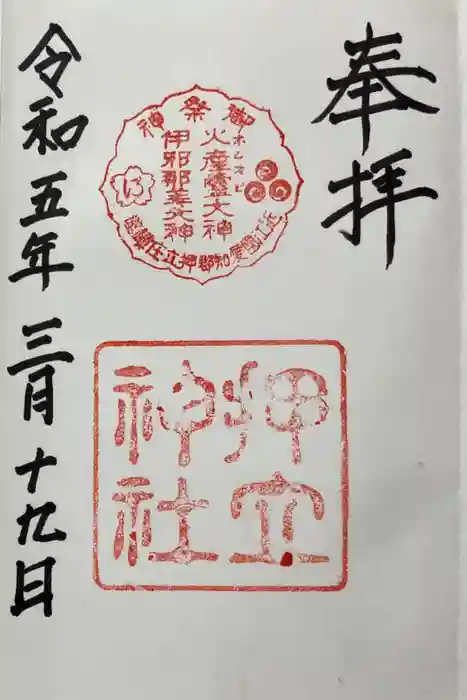 奉拝
御祭神
ホムスビ
火産霊大神
伊邪那美大神
近江國愛知郡押立庄
押立
神社
令和五年三月十九日